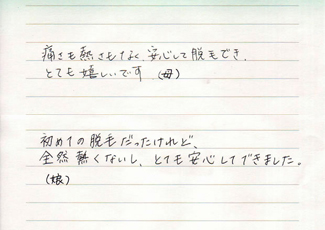 痛さも熱さもなく、安心して脱毛でき、
とても嬉しいです (母)
初めての脱毛だったけれど、
全然熱くないし、とても安心してできました。
(娘)